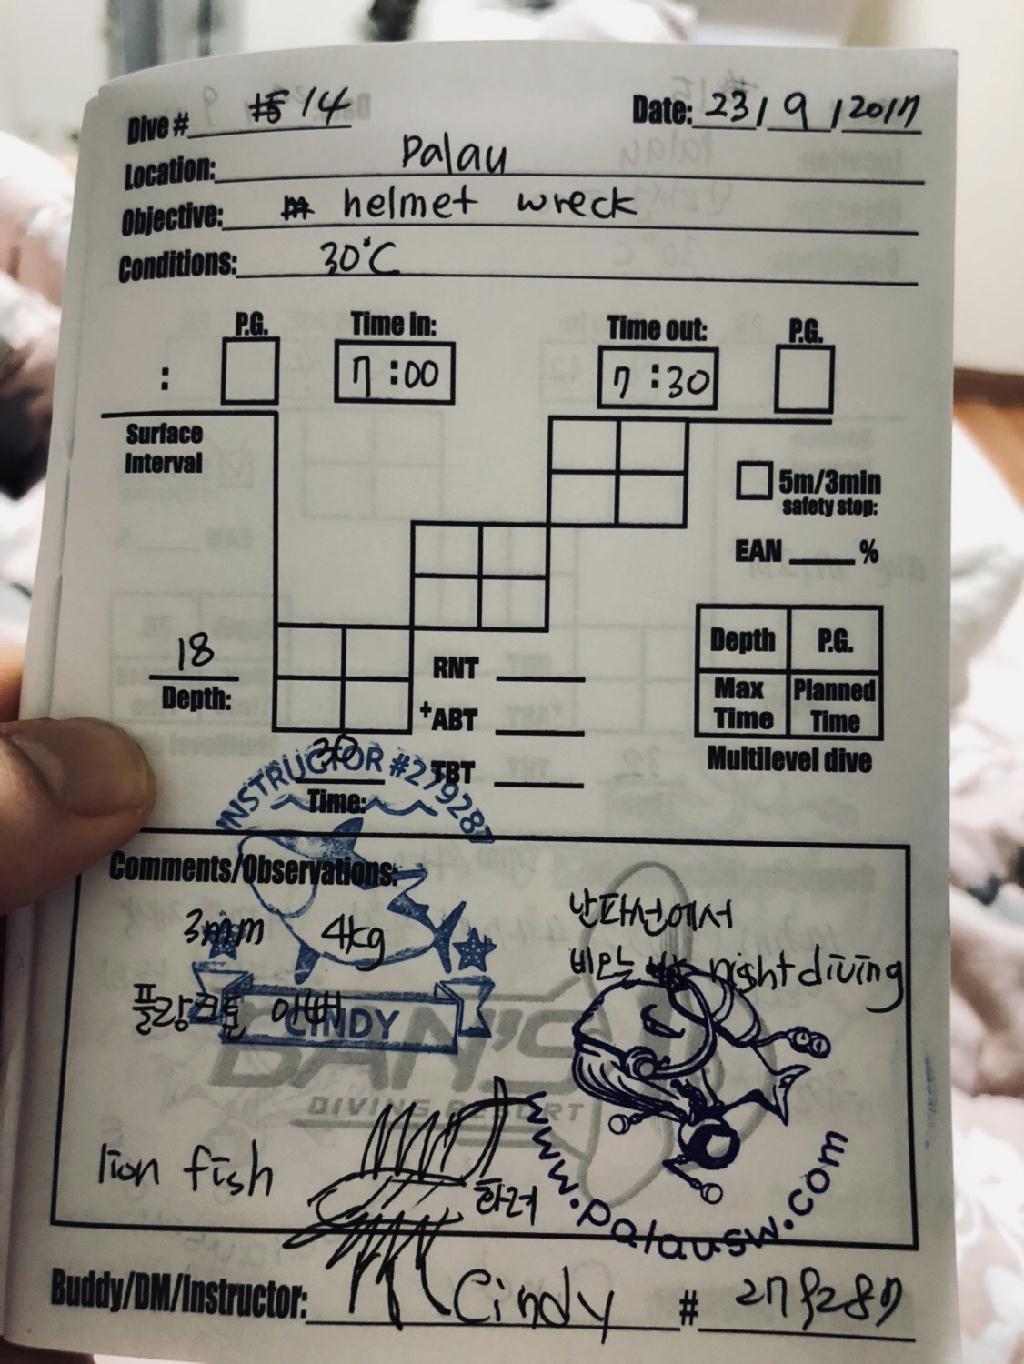 Dive # 14 Date: 23 / 9 / 2017
Location: Palau
Objective: helmet wreck
Conditions: 30°C
P.G. Time in: Time out: P.G.
: 7:00 7:30
Surface
Interval
5m/3min
safety stop:
EAN %
18
Depth:
RNT
+ABT
TBT
30
Time:
Depth P.G.
Max Time Planned Time
Multilevel dive
INSTRUCTOR #279287
Comments/Observations:
3mm 4kg
난파선에서
night diving
플랑크톤
CINDY
DAN'S
DIVING RESORT
lion fish
화려
www.palausw.com
Buddy/DM/Instructor: Cindy # 279287